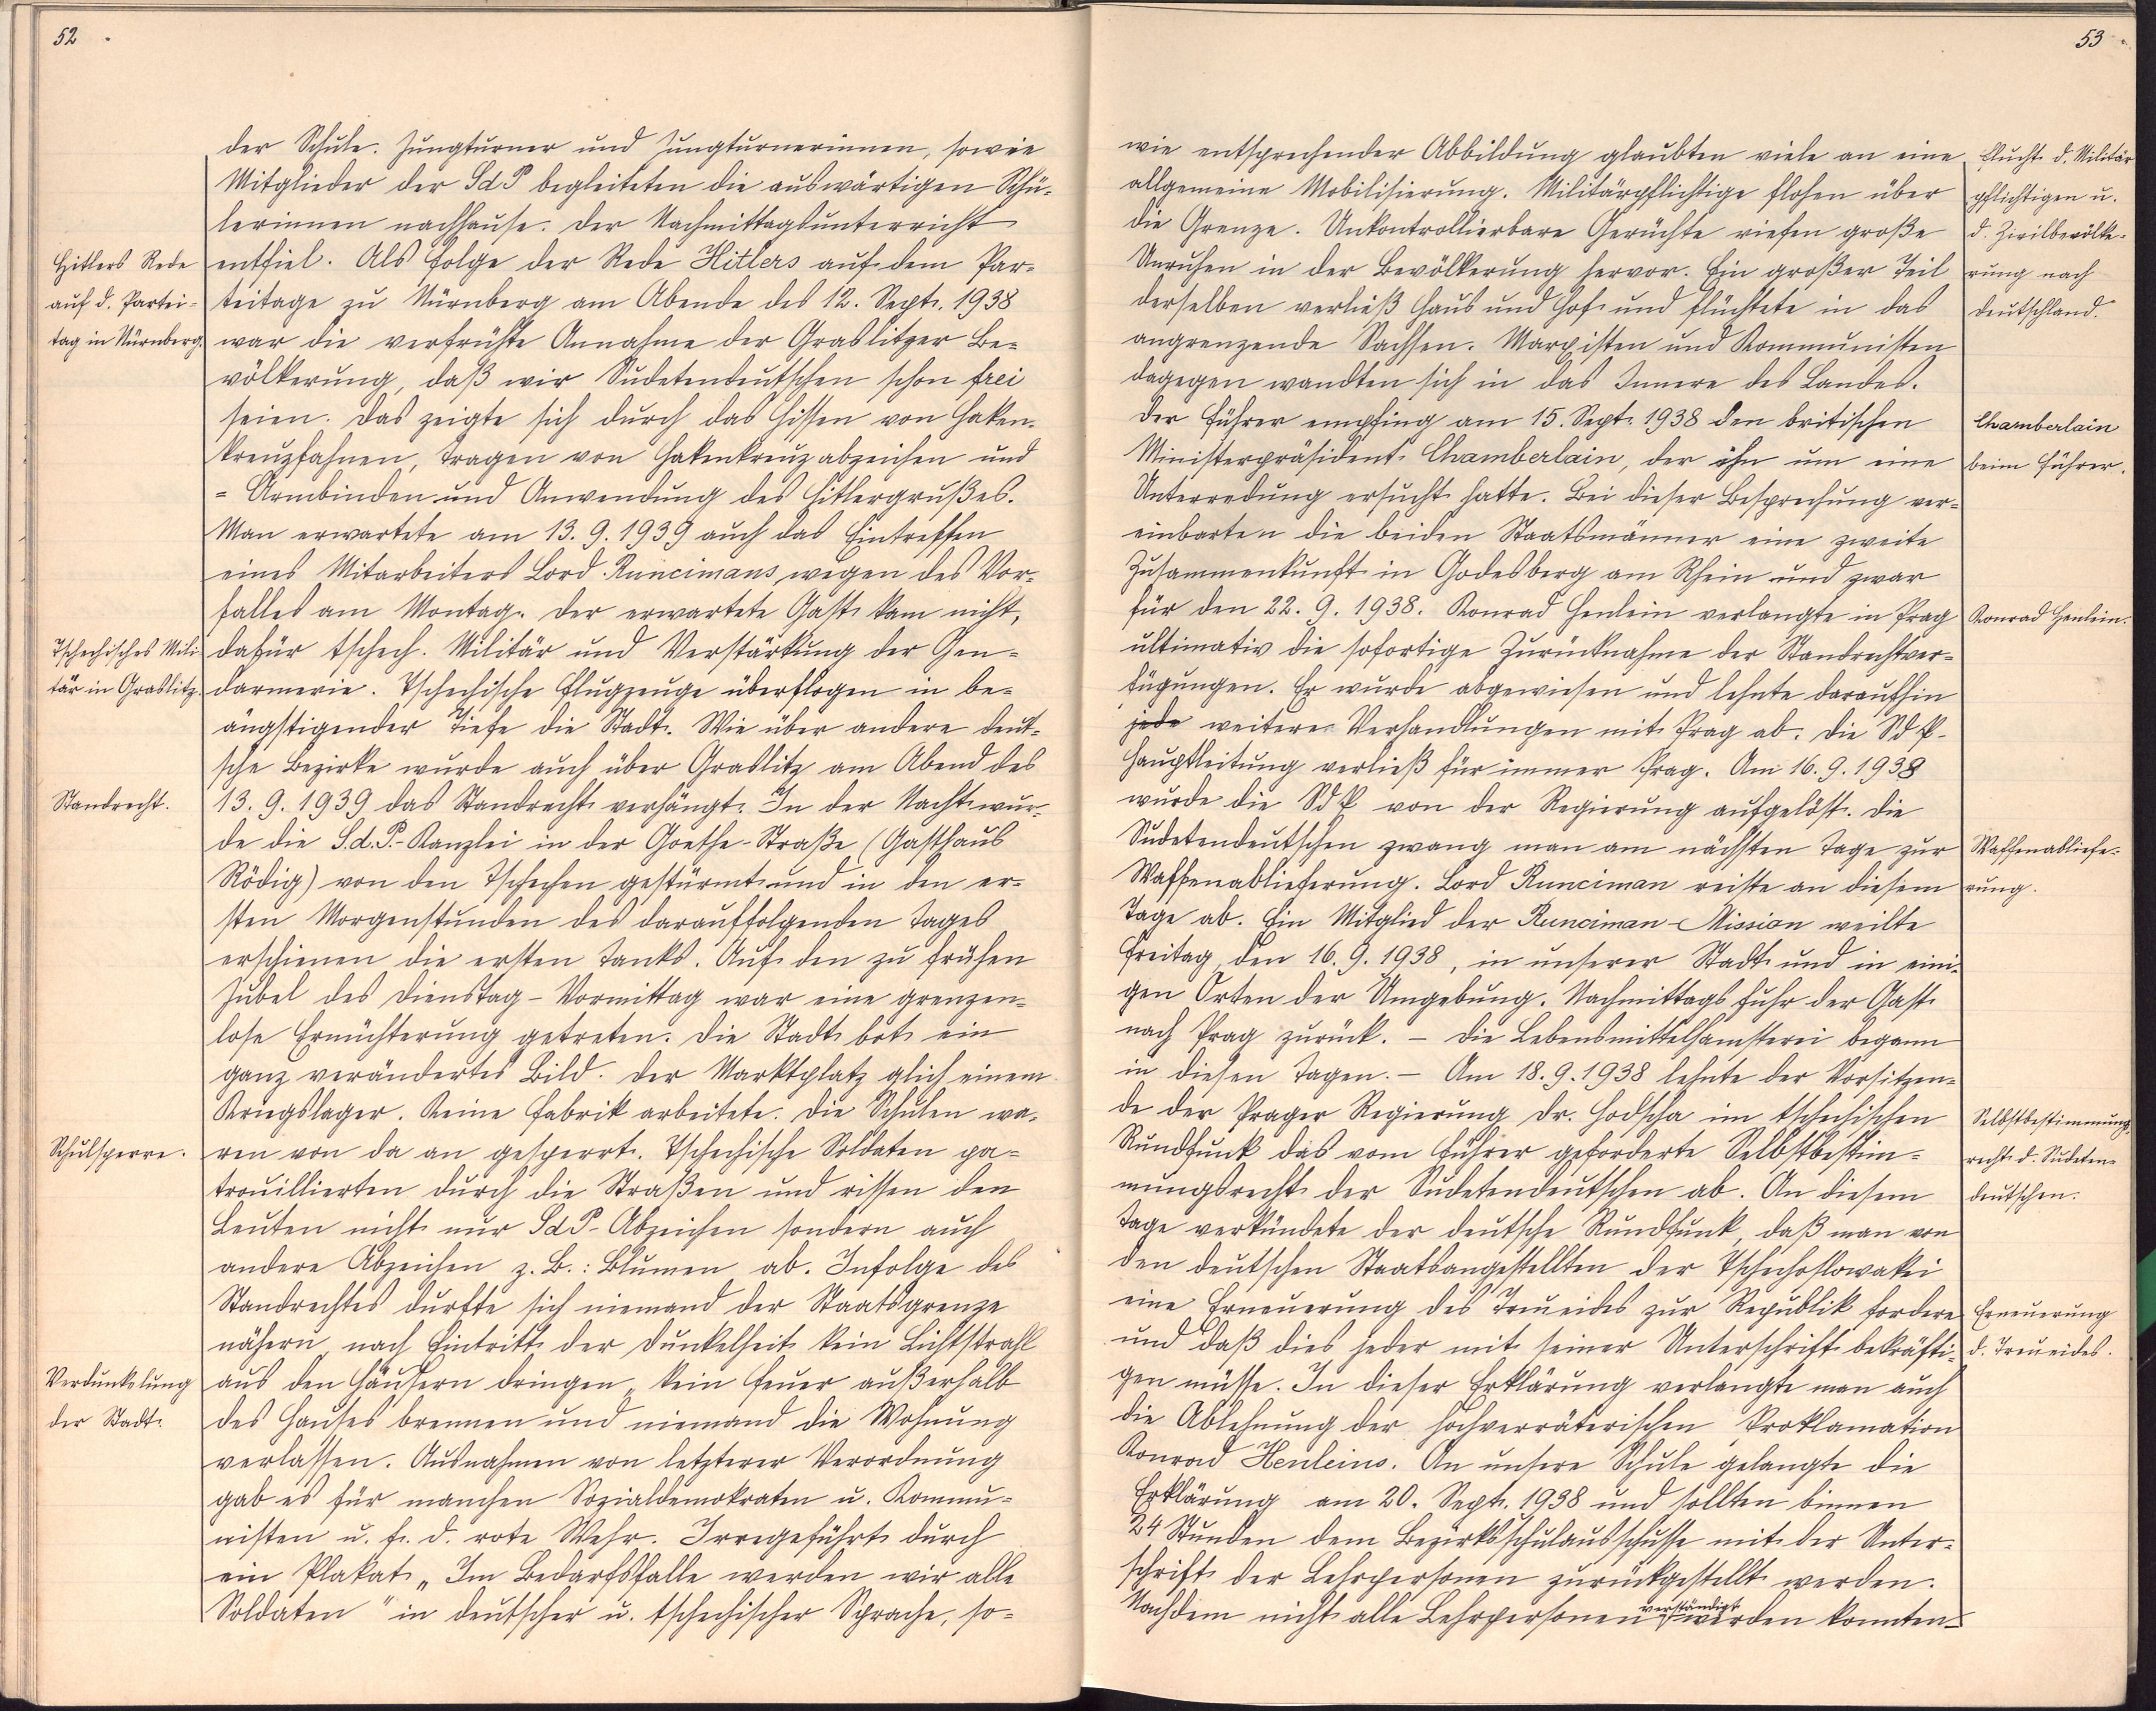 52
der Schule. Jungturner und Jungturnerinnen, sowie
Mitglieder der SdP begleiteten die auswärtigen Schü-
lerinnen nachhause. Der Nachmittagsunterricht
Hitlers Rede
entfiel. Als Folge der Rede Hitlers auf dem Par-
auf d. Partei-
teitage zu Nürnberg am Abende des 12. Sept. 1938
tag in Nürnberg.
war die verfrühte Annahme der Graslitzer Be-
völkerung, daß wir Sudetendeutschen schon frei
seien. Das zeigte sich durch das Hissen von Haken-
kreuzfahnen, Tragen von Hakenkreuzabzeichen und
= Armbinden und Anwendung des Hitlergrußes.
Man erwartete am 13. 9. 1939 auch das Eintreffen
eines Mitarbeiters Lord Runcimans wegen des Vor-
falles am Montag. Der erwartete Gast kam nicht,
Tschechisches Mili
dafür tschech. Militär und Verstärkung der Gen-
tär in Graslitz.
darmerie. Tschechische Flugzeuge überflogen in be-
ängstigender Tiefe die Stadt. Wie über andere deut-
sche Bezirke wurde auch über Graslitz am Abend des
Standrecht.
13. 9. 1939 das Standrecht verhängt. In der Nacht wur-
de die S.d.P.-Kanzlei in der Goethe-Straße (Gasthaus
Rödig) von den Tschechen gestürmt und in den er-
sten Morgenstunden des darauffolgenden Tages
erschienen die ersten Tanks. Auf den zu frühen
Jubel des Dienstag-Vormittag war eine grenzen-
lose Ernüchterung getreten. Die Stadt bot ein
ganz verändertes Bild. Der Marktplatz glich einem
Kriegslager. Keine Fabrik arbeitete. Die Schulen wa-
Schulsperre.
ren von da an gesperrt. Tschechische Soldaten pa-
trouillierten durch die Straßen und rissen den
Leuten nicht nur SdP-Abzeichen sondern auch
andere Abzeichen z. B.: Blumen ab. Infolge des
Standrechtes durfte sich niemand der Staatsgrenze
nähern, nach Eintritt der Dunkelheit kein Lichtstrahl
Verdunkelung
aus den Häusern dringen, kein Feuer außerhalb
der Stadt.
des Hauses brennen und niemand die Wohnung
verlassen. Ausnahmen von letzterer Verordnung
gab es für manchen Sozialdemokraten u. Kommu-
nisten u. f. d. rote Wehr. Irregeführt durch
ein Plakat „Im Bedarfsfalle werden wir alle
Soldaten" in deutscher u. tschechischer Sprache, so-
53
wie entsprechender Abbildung glaubten viele an eine
Flucht d. Militär
allgemeine Mobilisierung. Militärpflichtige flohen über
pflichtigen u.
die Grenze. Unkontrollierbare Gerüchte riefen große
d. Zivilbevölke-
Unruhen in der Bevölkerung hervor. Ein großer Teil
rung nach
derselben verließ Haus und Hof und flüchtete in das
Deutschland.
angrenzende Sachsen. Marxisten und Kommunisten
dagegen wandten sich in das Innere des Landes.
Der Führer empfing am 15. Sept. 1938 den britischen
Chamberlain
Ministerpräsident Chamberlain, der ihn um eine
beim Führer.
Unterredung ersucht hatte. Bei dieser Besprechung ver-
einbarten die beiden Staatsmänner eine zweite
Zusammenkunft in Godesberg am Rhein und zwar
für den 22. 9. 1938. Konrad Henlein verlangte in Prag
Konrad Henlein.
ultimativ die sofortige Zurücknahme der Standrechtver-
fügungen. Er wurde abgewiesen und lehnte daraufhin
jede weitere Verhandlungen mit Prag ab. Die SdP-
Hauptleitung verließ für immer Prag. Am 16. 9. 1938
wurde die SdP von der Regierung aufgelöst. Die
Sudetendeutschen zwang man am nächsten Tage zur
Waffenabliefe-
Waffenablieferung. Lord Runciman reiste an diesem
rung.
Tage ab. Ein Mitglied der Runciman-Mission weilte
Freitag, den 16. 9. 1938, in unserer Stadt und in eini-
gen Orten der Umgebung. Nachmittags fuhr der Gast
nach Prag zurück. – Die Lebensmittelhamsterei begann
in diesen Tagen. – Am 18. 9. 1938 lehnte der Vorsitzen-
de der Prager Regierung Dr. Hodscha im tschechischen
Selbstbestimmungs-
Rundfunk das vom Führer geforderte Selbstbestim-
recht d. Sudeten-
mungsrecht der Sudetendeutschen ab. An diesem
deutschen.
Tage verkündete der deutsche Rundfunk, daß man von
den deutschen Staatsangestellten der Tschechoslowakei
eine Erneuerung des Treueides zur Republik fordere
Erneuerung
und daß dies jeder mit seiner Unterschrift bekräfti-
d. Treueides.
gen müsse. In dieser Erklärung verlangte man auch
die Ablehnung der hochverräterischen Proklamation
Konrad Henleins. An unsere Schule gelangte die
Erklärung am 20. Sept. 1938 und sollten binnen
24 Stunden dem Bezirksschulausschusse mit der Unter-
schrift der Lehrpersonen zurückgestellt werden.
Nachdem nicht alle Lehrpersonen verständigt werden konnten